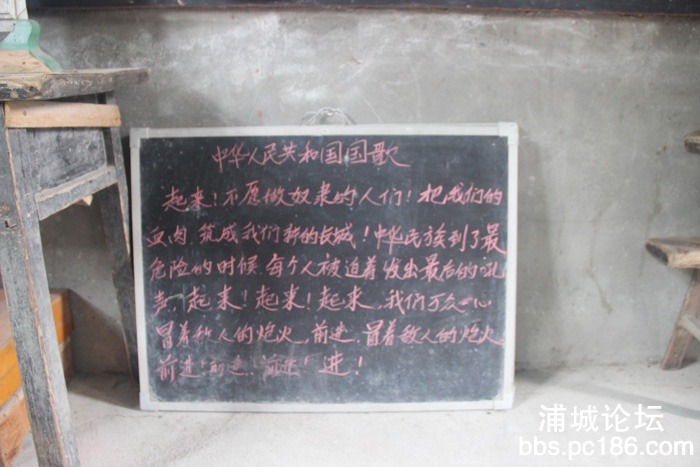 中华人民共和国国歌
起来！不愿做奴隶的人们！把我们的
血肉，筑成我们新的长城！中华民族到了最
危险的时候，每个人被迫着发出最后的吼
声，起来！起来！起来，我们万众一心
冒着敌人的炮火，前进，冒着敌人的炮火
前进！前进，前进！进！
浦城论坛
bbs.pc186.com